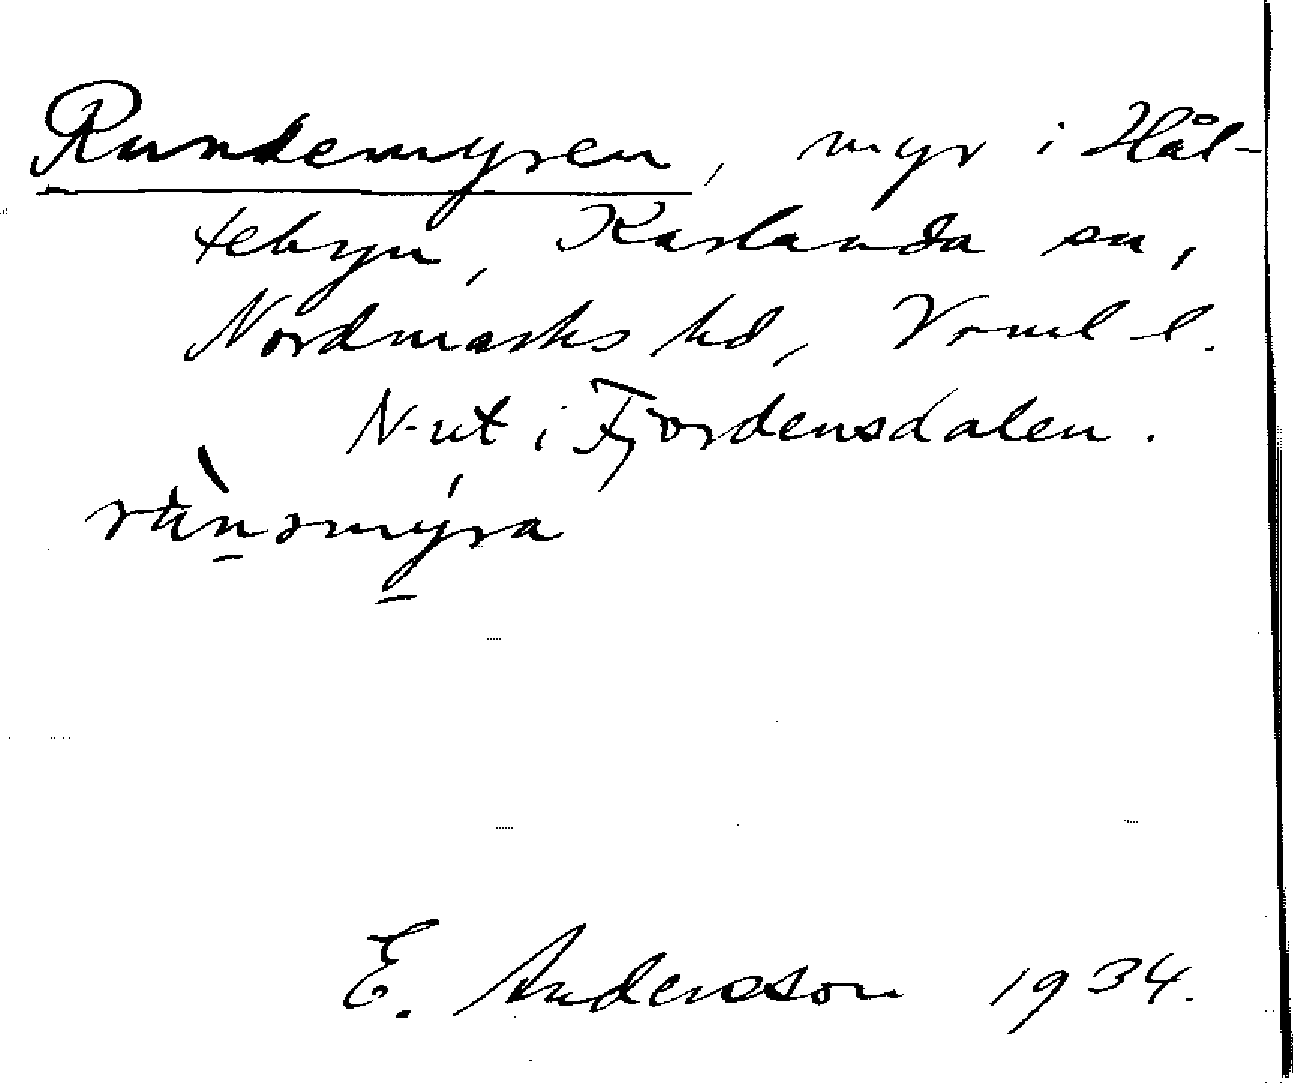 Rundemyren, myr i Hål-
tebyn, Karlanda sn,
Nordmarks hd, Vrml l.
N-ut i Fjordensdalen.
E. Andersson 1934.